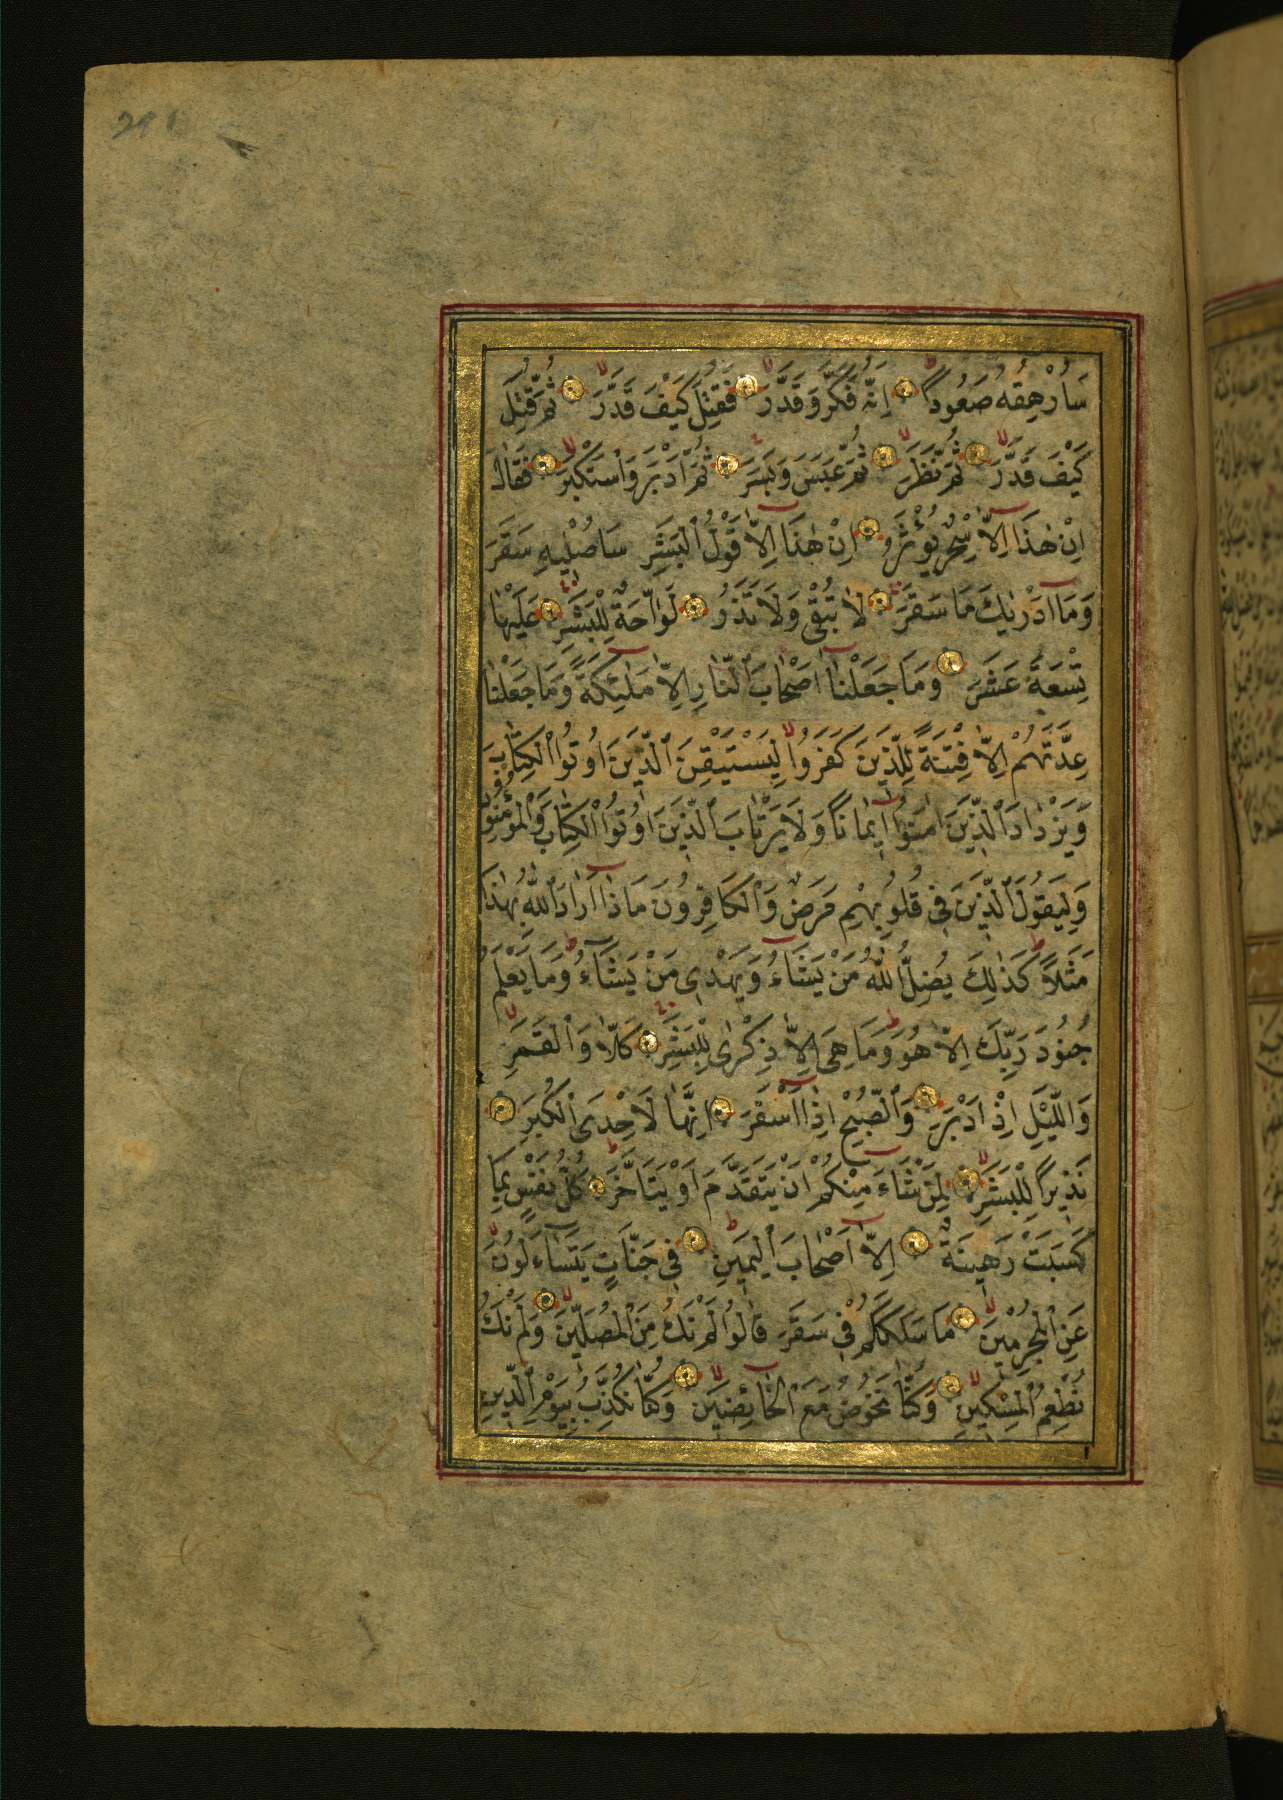 سَاُرْهِقُهُ صَعُودًا اِنَّهُ فَكَّرَ وَقَدَّرَ فَقُتِلَ كَيْفَ قَدَّرَ ثُمَّ قُتِلَ
كَيْفَ قَدَّرَ ثُمَّ نَظَرَ ثُمَّ عَبَسَ وَبَسَرَ ثُمَّ اَدْبَرَ وَاسْتَكْبَرَ فَقَالَ
اِنْ هٰذَا اِلَّا سِحْرٌ يُؤْثَرُ اِنْ هٰذَا اِلَّا قَوْلُ الْبَشَرِ سَاُصْلِيهِ سَقَرَ
وَمَا اَدْرٰيكَ مَا سَقَرُ لَا تُبْقِى وَلَا تَذَرُ لَوَّاحَةٌ لِلْبَشَرِ عَلَيْهَا
تِسْعَةَ عَشَرَ وَمَا جَعَلْنَا اَصْحَابَ النَّارِ اِلَّا مَلٰئِكَةً وَمَا جَعَلْنَا
عِدَّتَهُمْ اِلَّا فِتْنَةً لِلَّذِينَ كَفَرُوا لِيَسْتَيْقِنَ الَّذِينَ اُوتُوا الْكِتَابَ
وَيَزْدَادَ الَّذِينَ اٰمَنُوا اِيمَانًا وَلَا يَرْتَابَ الَّذِينَ اُوتُوا الْكِتَابَ وَالْمُؤْمِنُونَ
وَلِيَقُولَ الَّذِينَ فِى قُلُوبِهِمْ مَرَضٌ وَالْكَافِرُونَ مَاذَا اَرَادَ اللّٰهُ بِهٰذَا
مَثَلًا كَذٰلِكَ يُضِلُّ اللّٰهُ مَنْ يَشَاءُ وَيَهْدِى مَنْ يَشَاءُ وَمَا يَعْلَمُ
جُنُودَ رَبِّكَ اِلَّا هُوَ وَمَا هِىَ اِلَّا ذِكْرٰى لِلْبَشَرِ كَلَّا وَالْقَمَرِ
وَالَّيْلِ اِذْ اَدْبَرَ وَالصُّبْحِ اِذَا اَسْفَرَ اِنَّهَا لَاِحْدَى الْكُبَرِ
نَذِيرًا لِلْبَشَرِ لِمَنْ شَاءَ مِنْكُمْ اَنْ يَتَقَدَّمَ اَوْ يَتَاَخَّرَ كُلُّ نَفْسٍ بِمَا
كَسَبَتْ رَهِينَةٌ اِلَّا اَصْحَابَ الْيَمِينِ فِى جَنَّاتٍ يَتَسَاءَلُونَ
عَنِ الْمُجْرِمِينَ مَا سَلَكَكُمْ فِى سَقَرَ قَالُوا لَمْ نَكُ مِنَ الْمُصَلِّينَ وَلَمْ نَكُ
نُطْعِمُ الْمِسْكِينَ وَكُنَّا نَخُوضُ مَعَ الْخَائِضِينَ وَكُنَّا نُكَذِّبُ بِيَوْمِ الدِّينِ